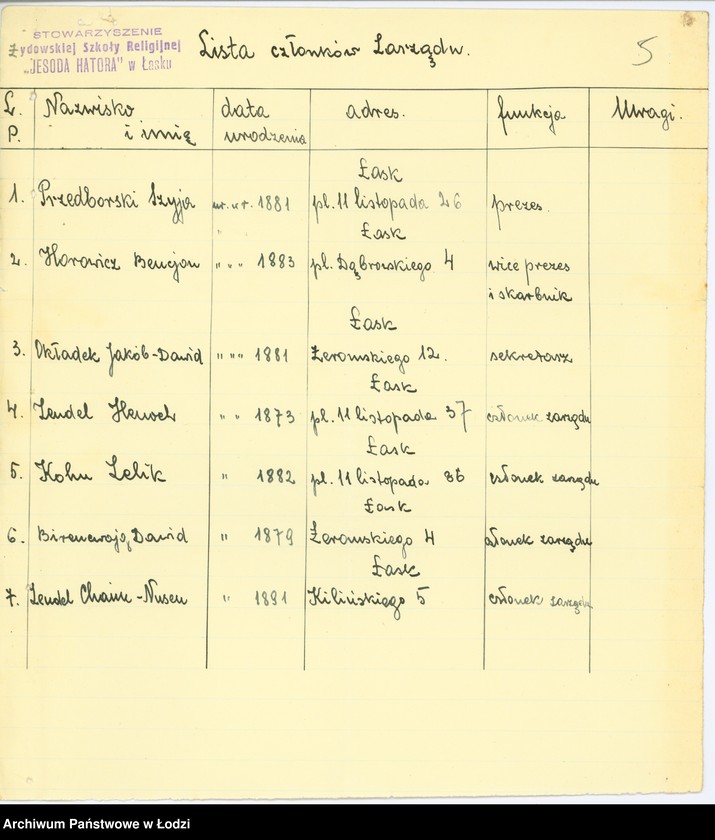 STOWARZYSZENIE
Żydowskiej Szkoły Religijnej
„JESODA HATORA" w Łasku
Lista członków Zarządu.
5
L. P. Nazwisko i imię data urodzenia adres. funkcja Uwagi.
Łask
1. Przedborski Szyja ur. w r. 1881 pl. 11 listopada 26 prezes.
Łask
2. Horowicz Bencjon " " " 1883 pl. Dąbrowskiego 4 wice prezes
i skarbnik
Łask
3. Okładek Jakób-Dawid " " " 1881 Żeromskiego 12. sekretarz
Łask
4. Zendel Henoch " " 1873 pl. 11 listopada 37 członek zarządu
Łask
5. Kohn Lelik " 1882 pl. 11 listopada 36 członek zarządu
Łask
6. Dawid " 1879 Żeromskiego 4 członek zarządu
Łask
7. Zendel Chaim-Nusen " 1891 Kilińskiego 5 członek zarządu
Archiwum Państwowe w Łodzi